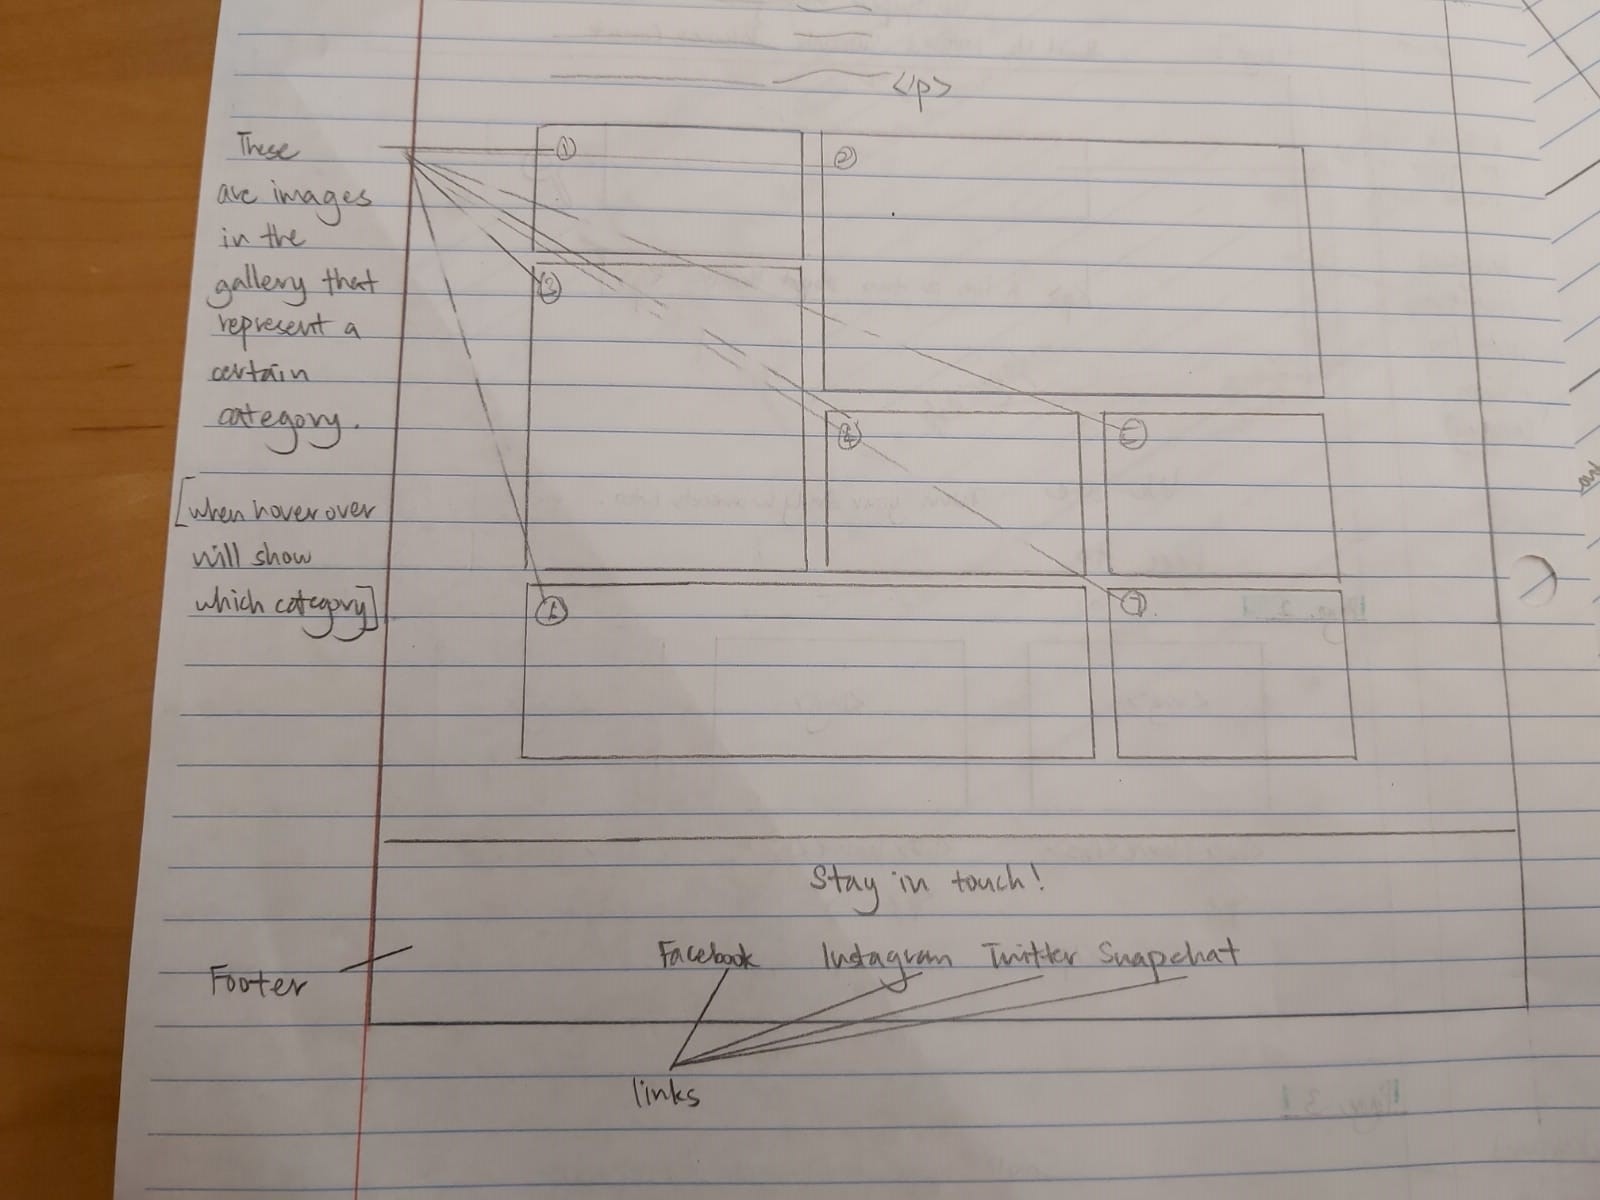 <p>
These
are images
in the
gallery that
represent a
certain
category.
[when hover over
will show
which category]
①
②
③
④
⑤
⑥
⑦
Stay in touch!
Facebook Instagram Twitter Snapchat
Footer
links